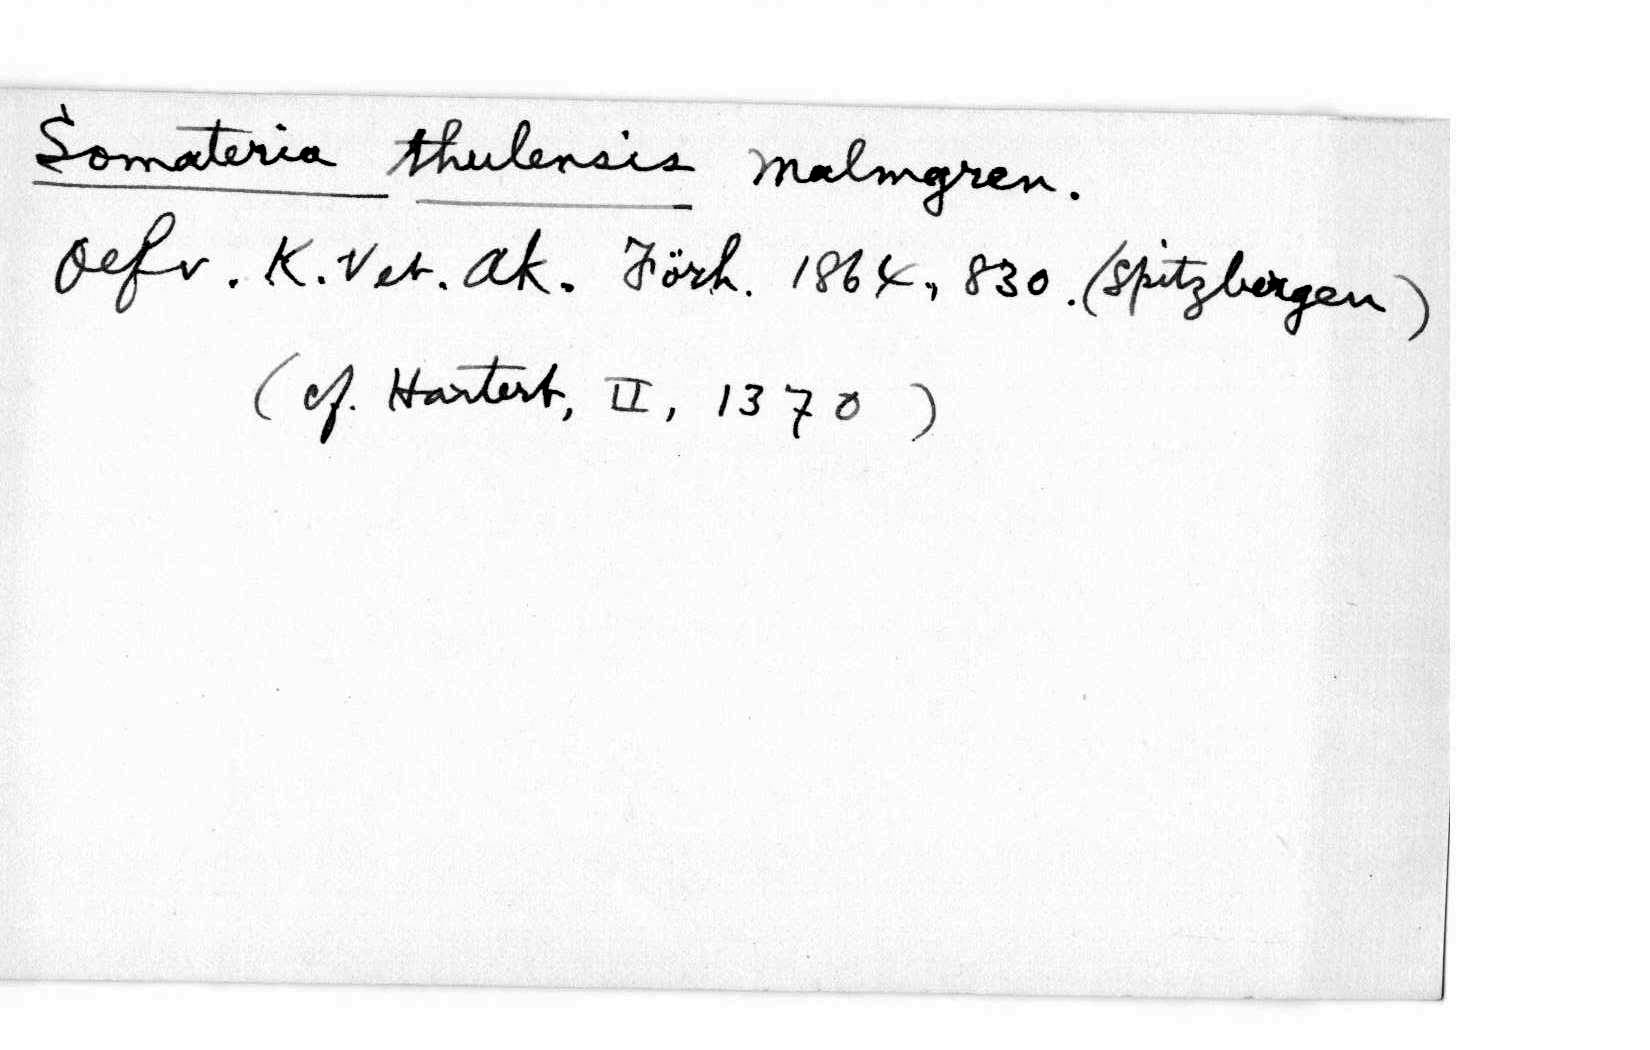 Somateria thulensis Malmgren.
Oefv. K. Vet. Ak. Förh. 1864, 830. (Spitzbergen)
(cf. Hartert, II, 1370)